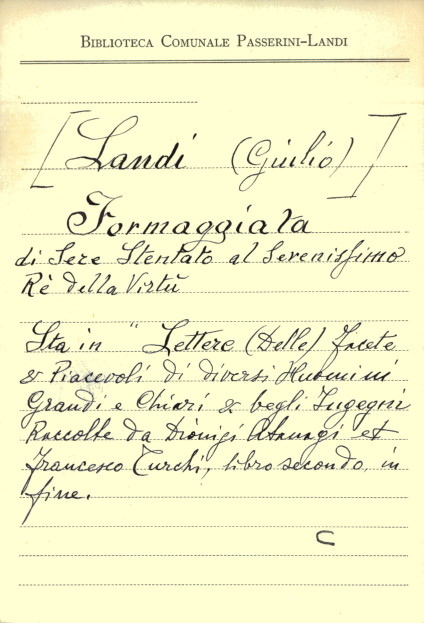 BIBLIOTECA COMUNALE PASSERINI-LANDI
[Landi (Giulio)]
Formaggiata
di Sere Stentato al Serenissimo
Rè della Virtù
Sta in "Lettere (Delle) facete
& Piacevoli di diversi Huomini
Grandi e Chiari & begli Ingegni
Raccolte da Dionigi Atanagi et
Francesco Turchi, libro secondo, in
fine.
C